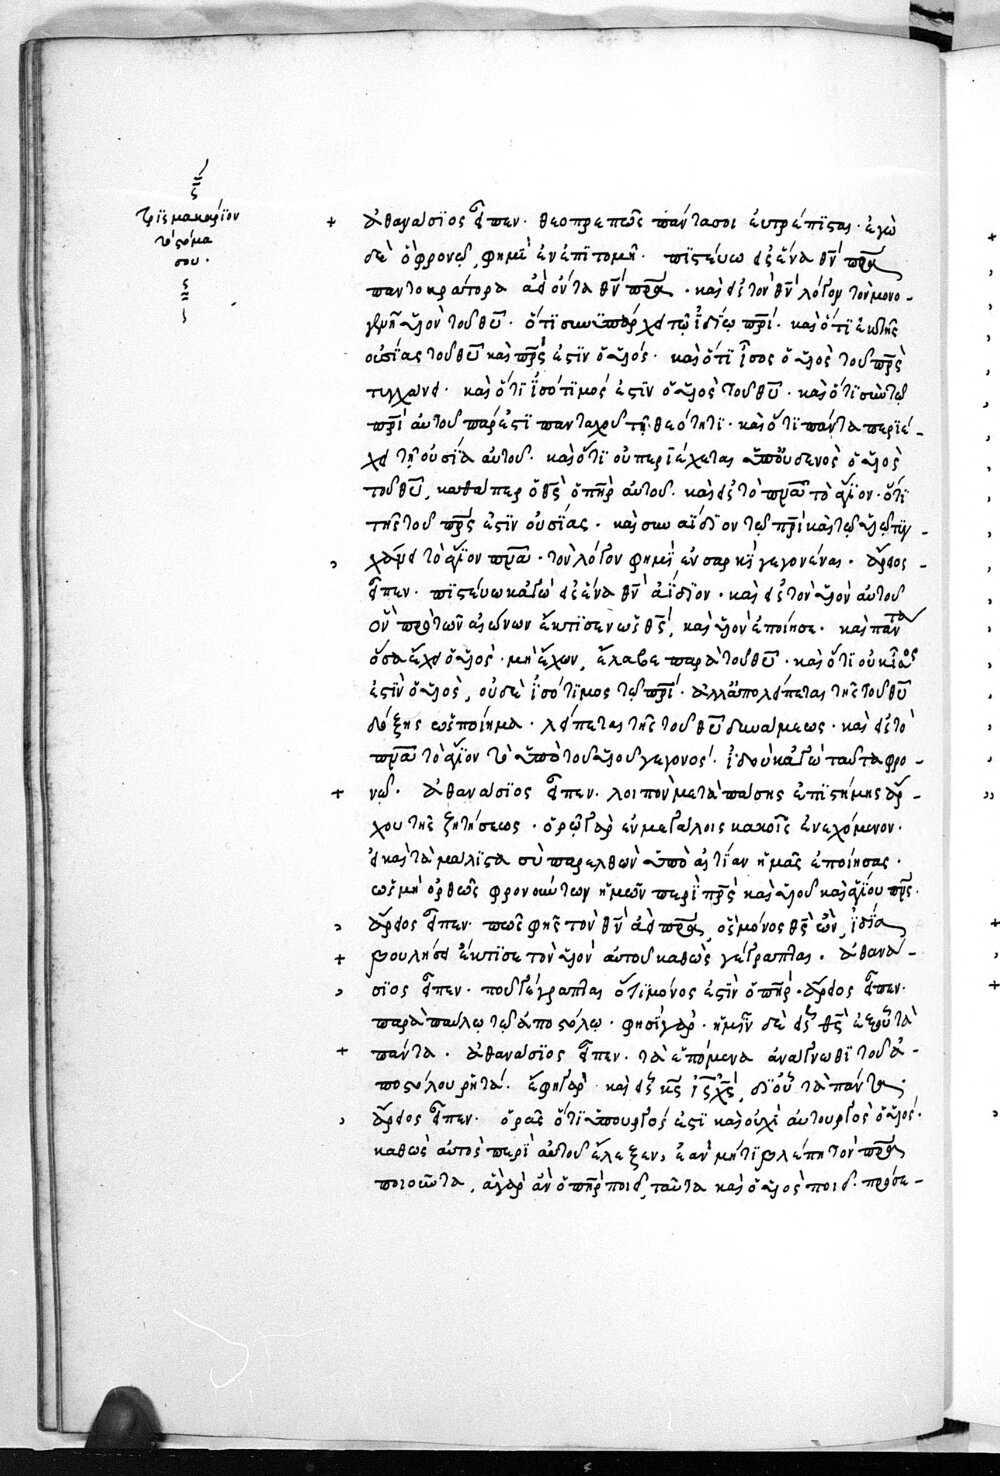 τρϊσμακάρϊον
τὸ στόμα
σου·
+ ἀθανάσϊος εἶπεν· θεοπρεπῶς παντάσοι ἐυτρέπϊσται· ἐγὼ
δὲ ὃ φρονῶ, φημὶ ἐν ἐπϊτομῆ· πϊστεύω εἰς ἕνα θν̅ πρ̅α
παντοκράτορα ἀεὶ ὄντα θν̅ πρ̅α· καὶ εἰς τὸν θν̅ λόγον τὸν μονο-
γενῆ ὑιὸν τοῦ θυ̅· ὅτϊ συνϋπάρχει τῶ ϊδίω πρϊ̅· καὶ ὅτϊ ἐκ τῆς
οὐσίας τοῦ θυ̅ καὶ πρ̅ς ἐστϊν ὁ ὑιός· καὶ ὅτϊ ἶσος ὁ ὑιὸς τοῦ πρ̅ς
τυγχάνει· καὶ ὅτϊ ϊσότϊμός ἐστϊν ὁ ὑιὸς τοῦ θυ̅· καὶ ὅτϊ σὺν τῶ
πρϊ̅ αὐτοῦ πάρεστϊ πανταχοῦ τῆ θεότητϊ· καὶ ὅτϊ πάντα περϊέ-
χει τῆ οὐσία αὐτοῦ· καὶ ὅτϊ οὐ περϊέχεται ὑπ' οὐδενὸς ὁ ὑιὸς
τοῦ θυ̅, καθάπερ ὁ θς̅ ὁ πη̅ρ αὐτοῦ· καὶ εἰς τὸ πν̅α τὸ ἅγϊον· ὅτϊ
τῆς τοῦ πρ̅ς ἐστϊν οὐσίας· καὶ συναΐδϊον τῶ πρϊ̅ καὶ τῶ ὑιῶ τυγ-
, χάνει τὸ ἅγϊον πν̅α· τὸν λόγον φημὶ, ἐν σαρκϊ γεγονέναι· ἄρειος
εἶπεν· πϊστεύω κἀγὼ εἰς ἕνα θν̅ ἀΐδϊον· καὶ εἰς τὸν ὑιὸν αὐτοῦ
ὃν πρὸ τῶν αἰώνων ἔκτϊσεν ὡς θς̅, καὶ ὑιὸν ἐποίησε· καὶ πάντα
ὅσα ἔχει ὁ ὑιὸς· μὴ ἔχων, ἔλαβε παρὰ τοῦ θυ̅· καὶ ὅτϊ οὐκ ἶσος
ἐστϊν ὁ ὑιὸς, οὐδὲ ϊσότϊμος τῶ πρϊ̅· ἀλλ' ἀπολείπεται τῆς τοῦ θυ̅
δόξης ὡς ποίημα· λείπεται τῆς τοῦ θυ̅ δυνάμεως· καὶ εἰς τὸ
πν̅α τὸ ἅγϊον τὸ ὑπὸ τοῦ ὑιοῦ γεγονός· ϊδοὺ κἀγὼ ταῦτα φρο-
+ νῶ· ἀθανάσϊος εἶπεν· λοιπὸν μετὰ πάσης ἐπϊστήμης ἄρ-
χου τῆς ζητήσεως· ὁρῶ γὰρ ἐν μεγάλοις κακοῖς ἐνεχόμενον·
εἰ καὶ τὰ μάλϊστα σὺ παρελθὼν ὑπὸ αἰτίαν ἡμᾶς ἐποίησας·
ὡς μὴ ὀρθῶς φρονούντων ἡμῶν περὶ πρ̅ς καὶ ὑιοῦ καὶ ἁγίου πν̅ς·
, ἄρειος εἶπεν· πῶς φῆς τὸν θν̅ ἀεὶ πρ̅α, ὃς μόνος θς̅ ὢν, ϊδία
+ βουλήσει ἔκτϊσε τὸν ὑιὸν αὐτοῦ καθὼς γέγραπται· ἀθανά-
, σϊος εἶπεν· ποῦ γέγραπται ὅτϊ μόνος ἐστϊν ὁ πη̅ρ· ἄρειος εἶπεν·
παρὰ παύλω τῶ ἀποστόλω· φησὶ γάρ· ἡμῖν δὲ εἷς θς̅ ἐξ οὗ τὰ
+ πάντα· ἀθανάσϊος εἶπεν· τὰ ἑπόμενα ἀνάγνωθϊ τοῦ ἀ-
ποστόλου ρητά· ἔφη γὰρ· καὶ εἷς κς̅ ις̅ χς̅, δϊ' οὗ τὰ πάντα·
, ἄρειος εἶπεν· ὁρᾶς ὅτϊ ὑπουργός ἐστϊ καὶ οὐχὶ αὐτουργὸς ὁ ὑιός·
καθὼς αὐτὸς περὶ αὐτοῦ ἔλεξεν, ἐὰν μή τϊ βλέπη τὸν πρ̅α
ποιοῦντα, ἃ γὰρ ἂν ὁ πη̅ρ ποιεῖ, ταῦτα καὶ ὁ ὑιὸς ποιεῖ· πρόσε-